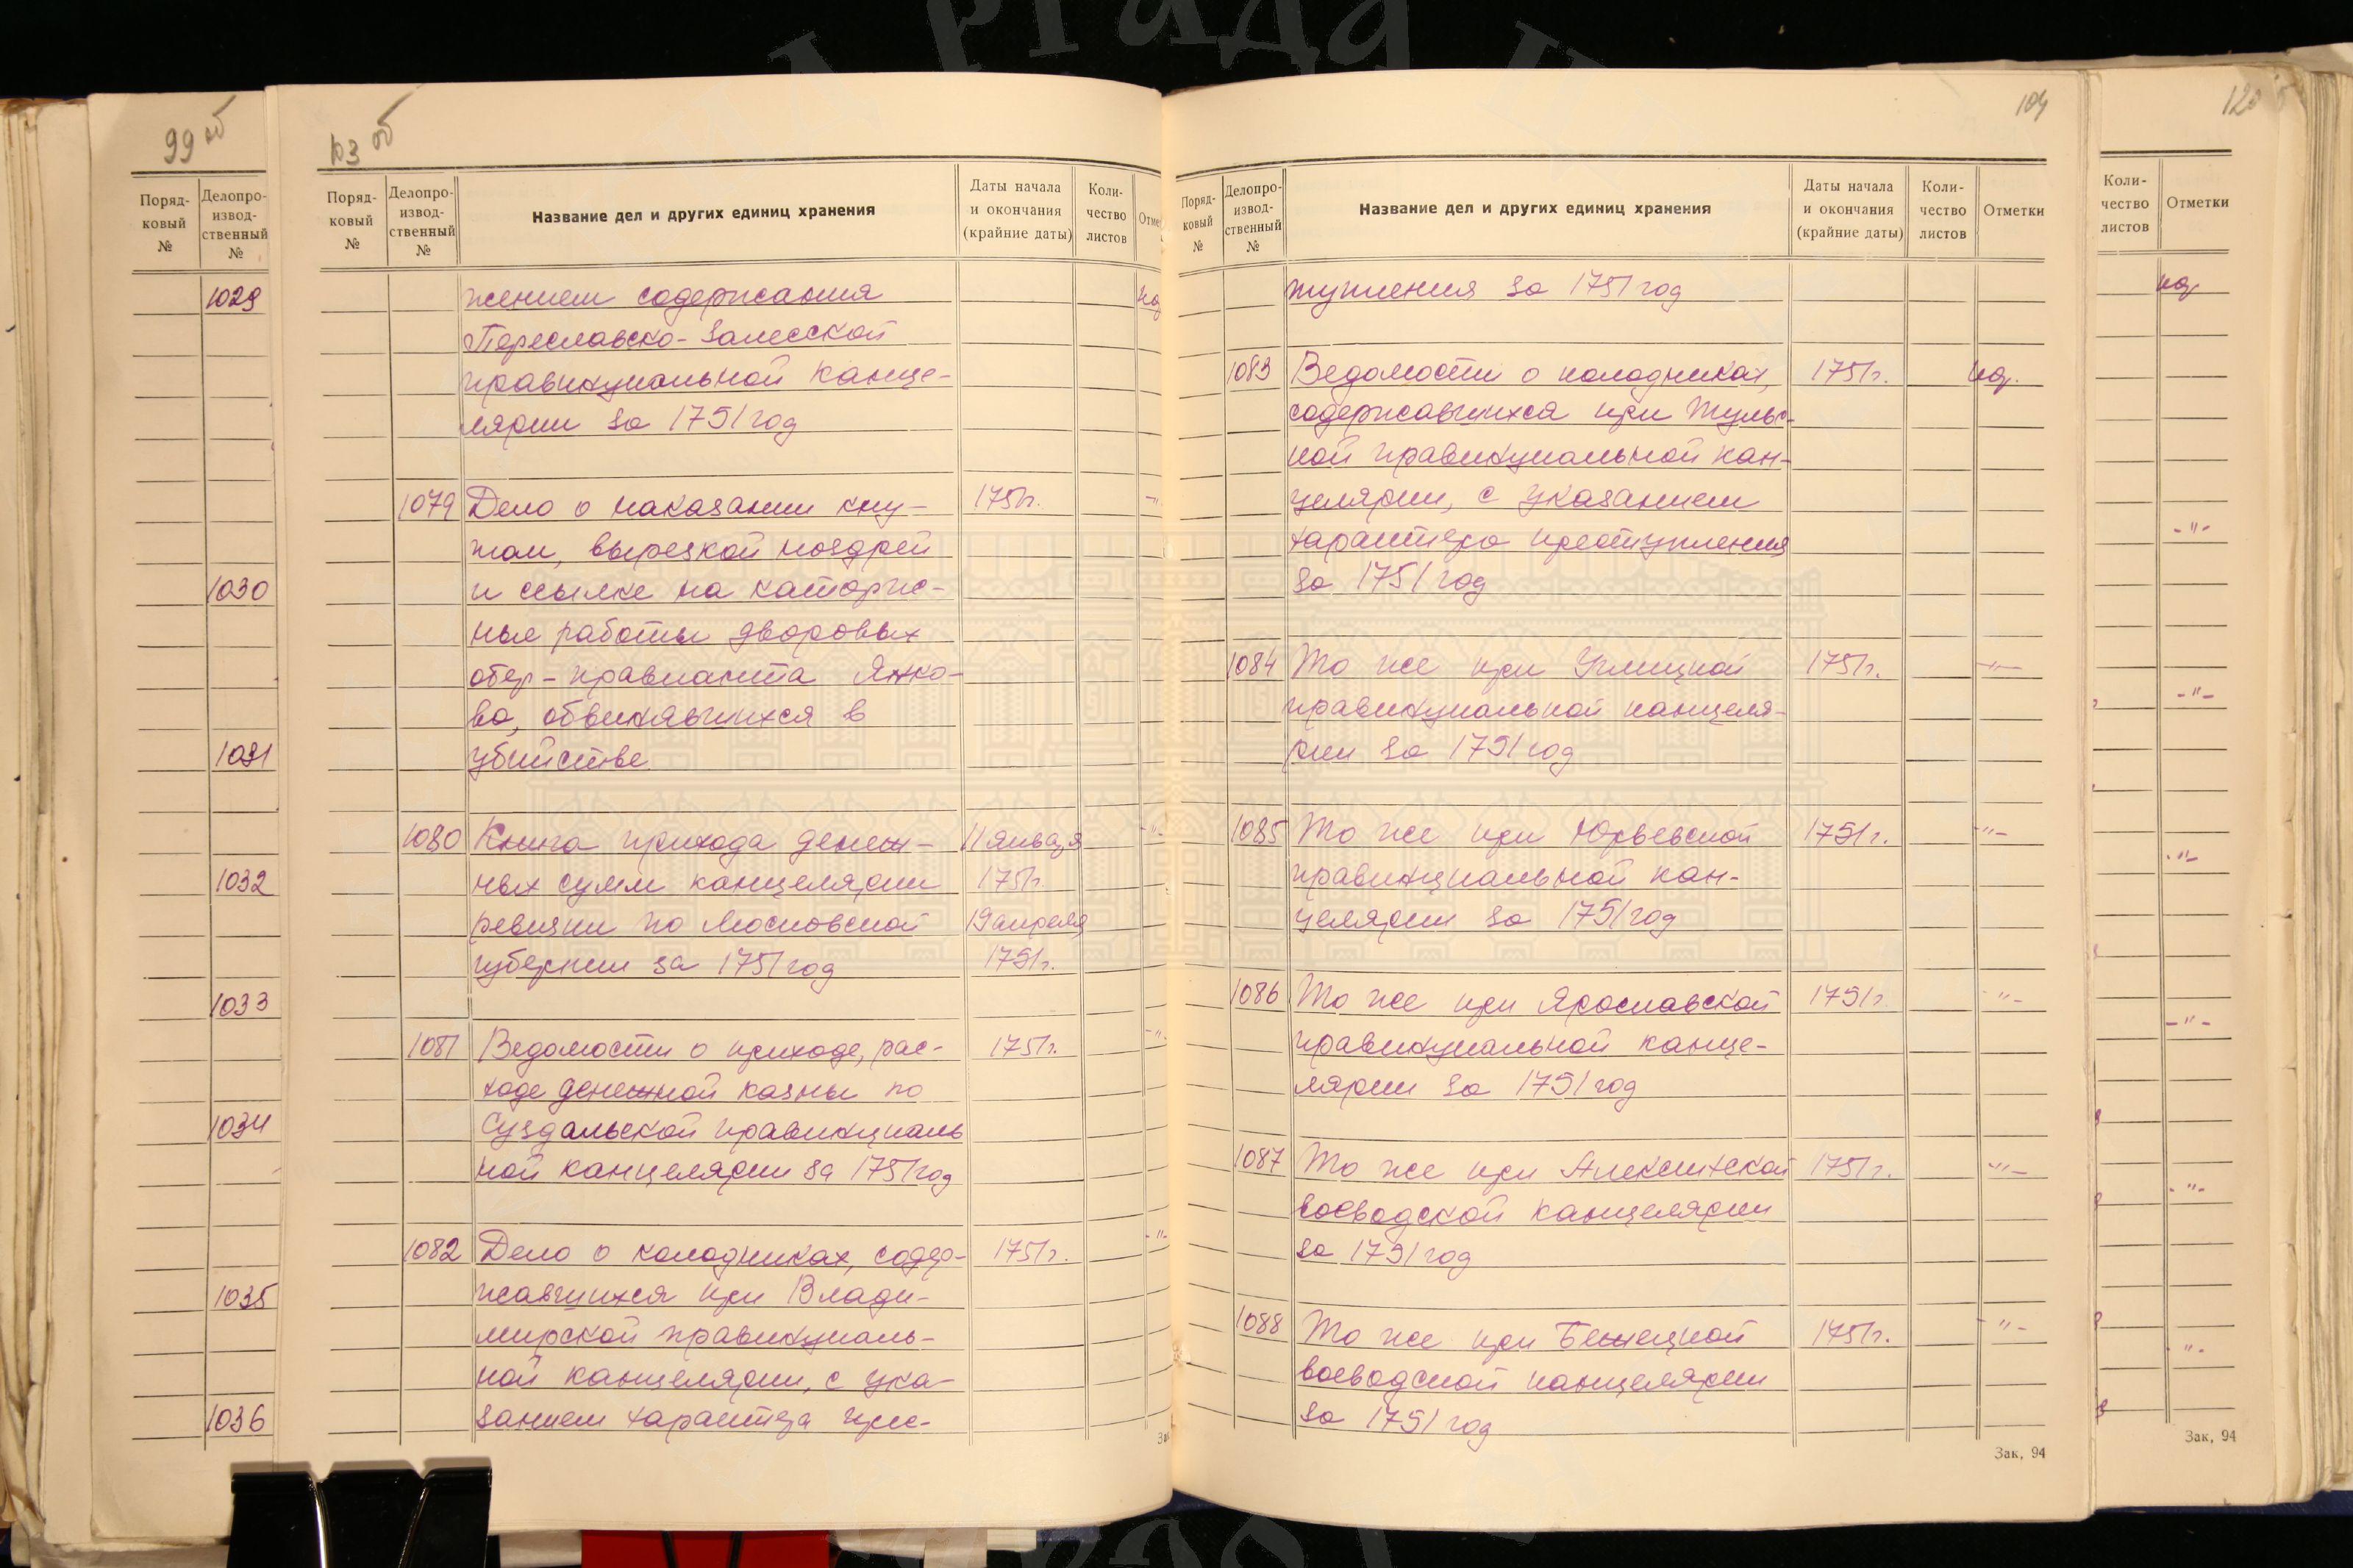 99 об
Поряд-
ковый
№
Делопро-
извод-
ственный
№
1029
1030
1031
1032
1033
1034
1035
1036
103 об
Поряд-
ковый
№
Делопро-
извод-
ственный
№
Название дел и других единиц хранения
Даты начала
и окончания
(крайние даты)
Коли-
чество
листов
жением содержания
Переславско-Залесской
провинциальной канце-
лярии за 1751 год
1079 Дело о наказании кну- 1751г. -"
том, вырезкой ноздрей
и ссылке на каторж-
ные работы дворовых
обер-провианта Янко-
ва, обвинявшихся в
убийстве
1080 Книга прихода денеж- 11 января -"-
ных сумм канцелярии 1751г.
ревизии по Московской 19 апреля
губернии за 1751 год 1751г.
1081 Ведомости о приходе, рас- 1751г. -"-
ходе денежной казны по
Суздальской провинциаль
ной канцелярии за 1751 год
1082 Дело о колодниках, содер- 1751г. -"-
жавшихся при Влади-
мирской провинциаль-
ной канцелярии, с ука-
занием характера прес-
104
Поряд-
ковый
№
Делопро-
извод-
ственный
№
Название дел и других единиц хранения
Даты начала
и окончания
(крайние даты)
Коли-
чество
листов
Отметки
тупления за 1751 год
1083 Ведомости о колодниках, 1751г.
содержавшихся при Тульс-
кой провинциальной кан-
целярии, с указанием
характера преступления
за 1751 год
1084 То же при Углицкой 1751г. -"-
провинциальной канцеля-
рии за 1751 год
1085 То же при Юрьевской 1751г. -"-
провинциальной кан-
целярии за 1751 год
1086 То же при Ярославской 1751г. -"-
провинциальной канце-
лярии за 1751 год
1087 То же при Алексинской 1751г. -"-
воеводской канцелярии
за 1751 год
1088 То же при Бежецкой 1751г. -"-
воеводской канцелярии
за 1751 год
Зак. 94
Коли-
чество
листов
Отметки
-"-
-"-
-"-
-"-
-"-
-"-
Зак. 94